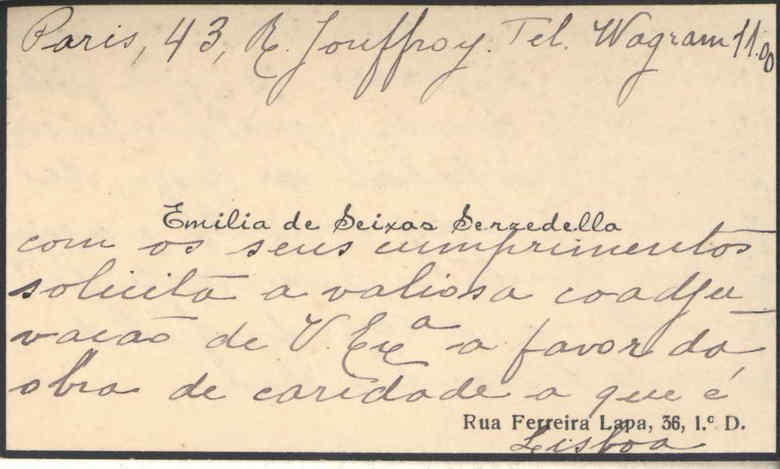 Paris, 43, R. Jouffroy. Tel. Wagram 11.00
Emilia de Seixas Serzedella
com os seus cumprimentos
solicita a valiosa coadju
vação de V. Exª a favor da
obra de caridade a que é
Rua Ferreira Lapa, 36, 1.º D.
Lisboa